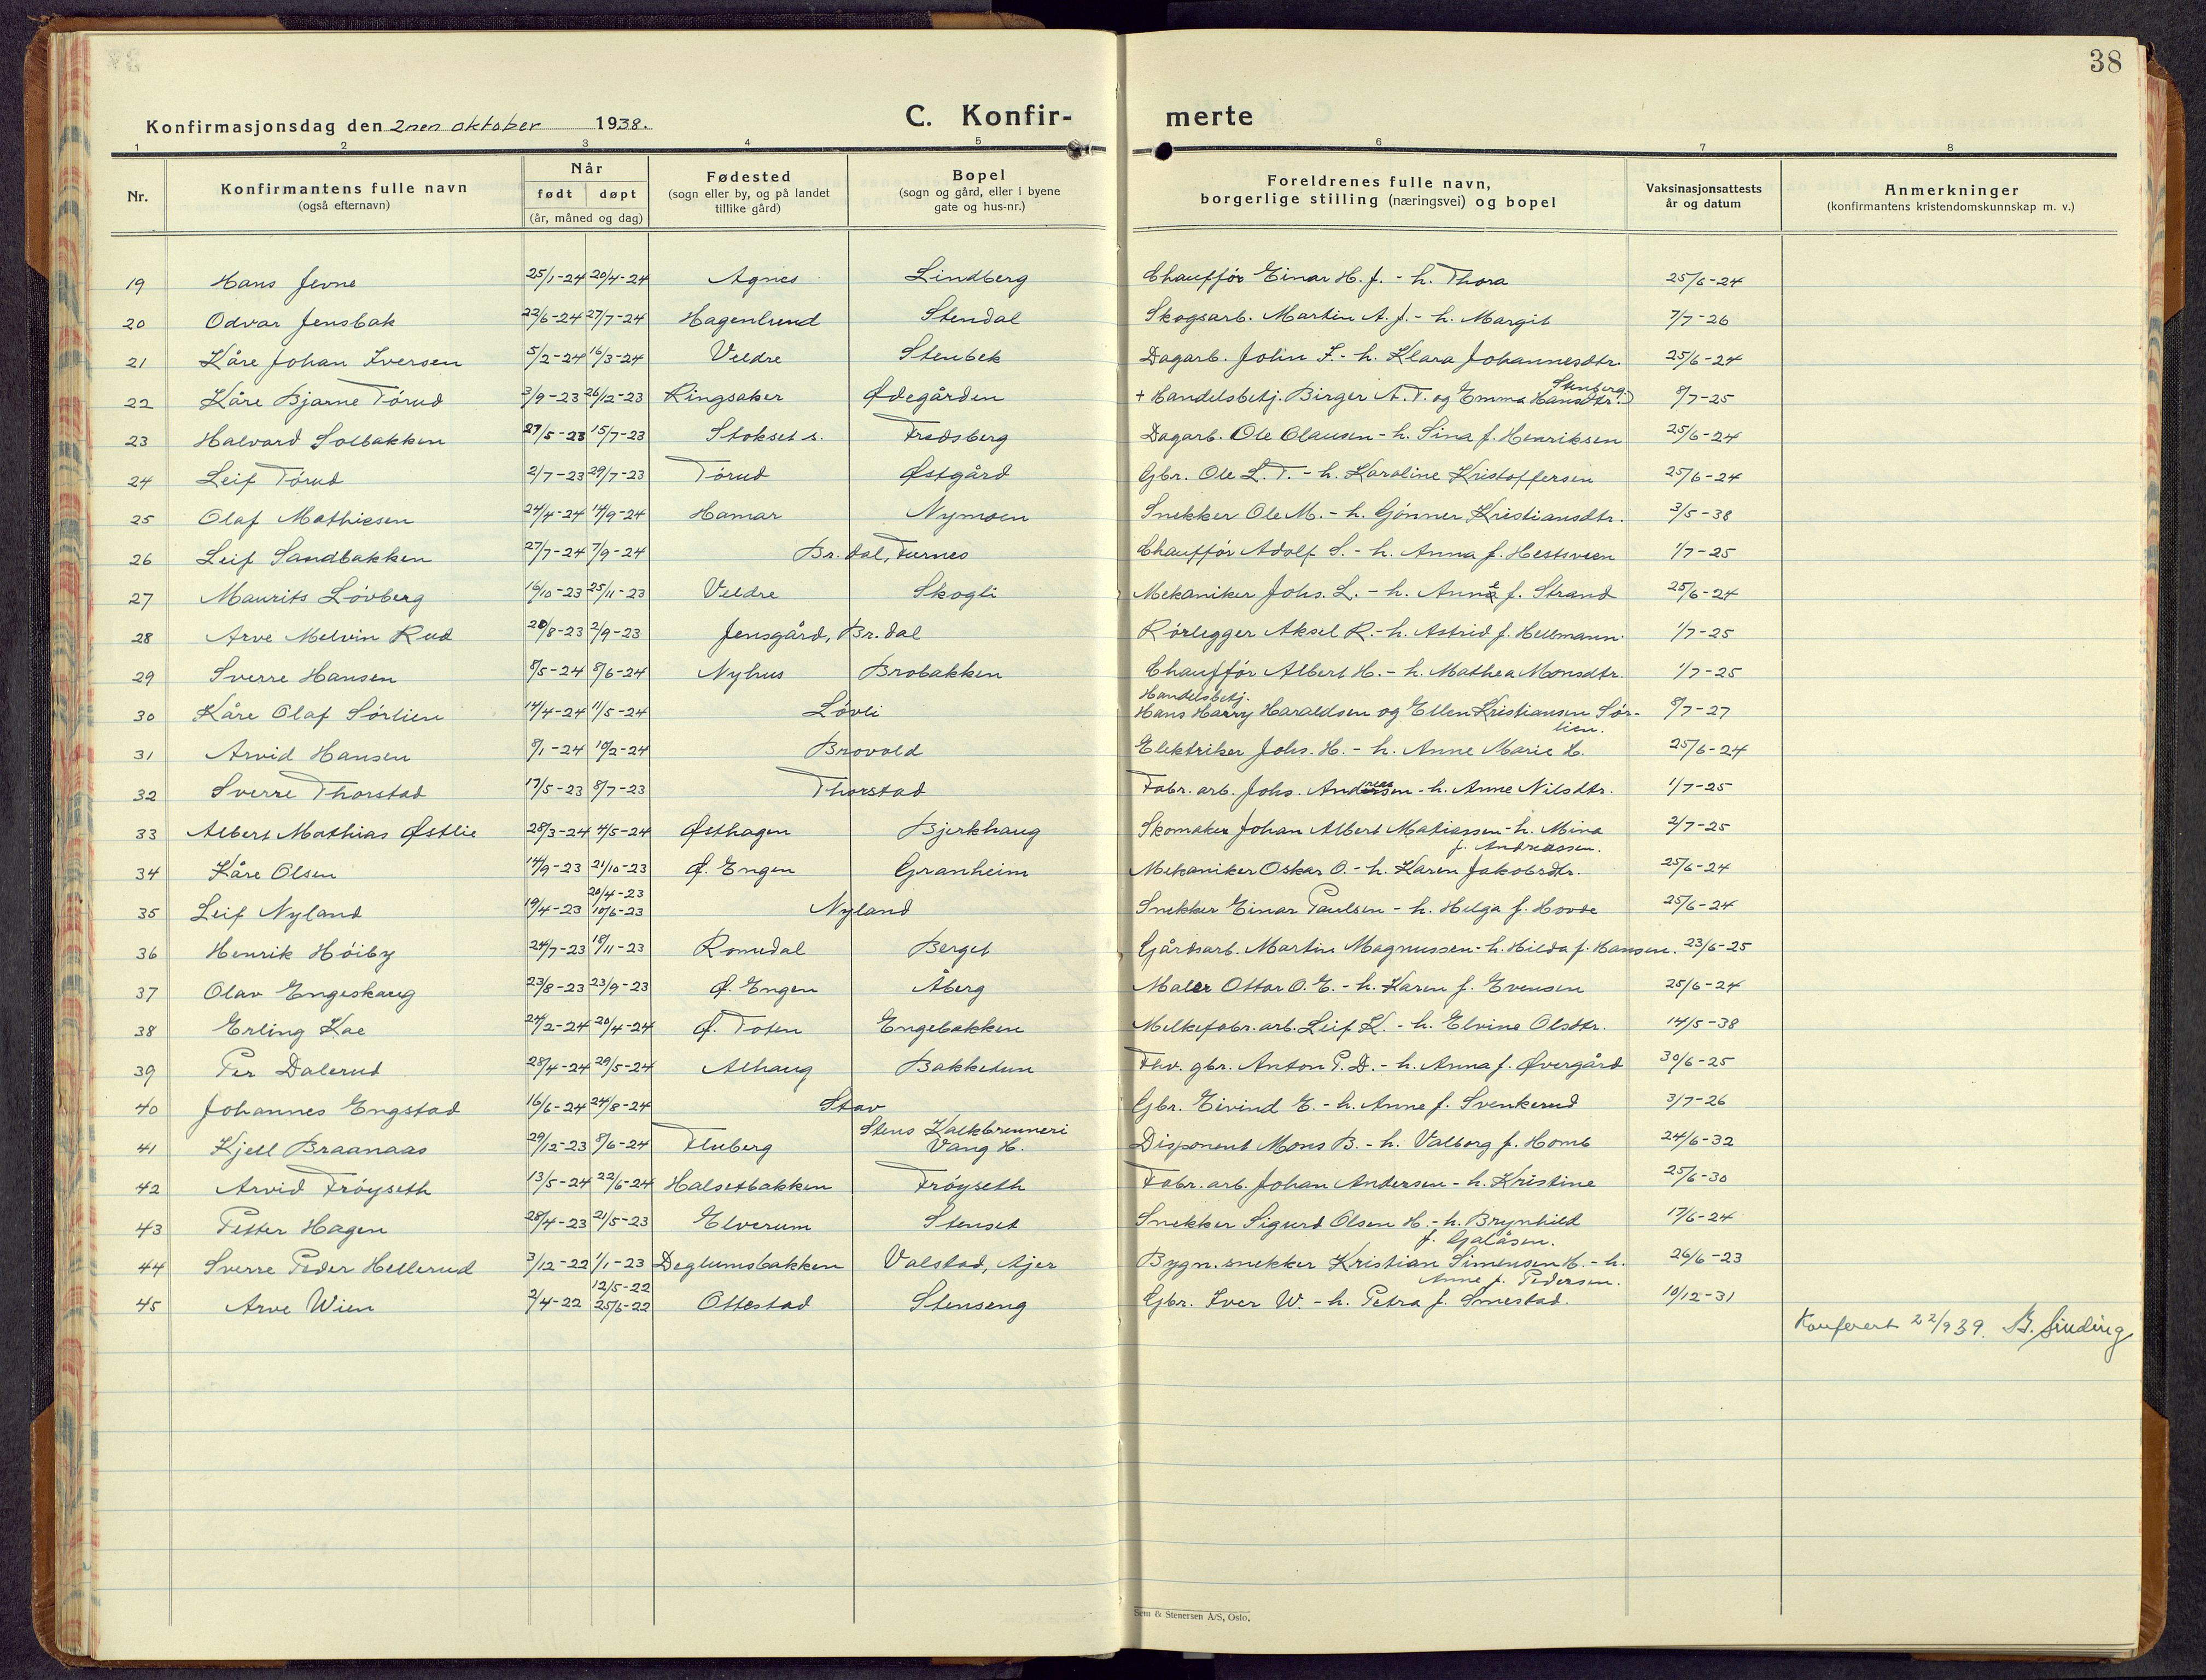 38
Konfirmasjonsdag den 2nen oktober 1938. C. Konfir- merte
1 2 3 4 5 6 7 8
Nr. Konfirmantens fulle navn (også efternavn) Når født døpt (år, måned og dag) Fødested (sogn eller by, og på landet tillike gård) Bopel (sogn og gård, eller i byene gate og hus-nr.) Foreldrenes fulle navn, borgerlige stilling (næringsvei) og bopel Vaksinasjonsattests år og datum Anmerkninger (konfirmantens kristendomskunnskap m. v.)
19 Hans Jevne 25/1-24 20/4-24 Agnes Lindberg Chauffør Einar H. J. - h. Thora 25/6-24
20 Odvar Jensbak 22/6-24 27/7-24 Hagenlund Stendal Skogsarb. Martin A. J. - h. Margit 7/7-26
21 Kåre Johan Iversen 5/2-24 16/3-24 Veldre Stenbek Dagarb. Johin I. - h. Klara Johannesdtr. 25/6-24
22 Kåre Bjarne Tørud 3/9-23 26/12-23 Ringsaker Ødegården + Handelsbetj. Birger A. T. og Emma Hansdtr. Stenberg. 8/7-25
23 Halvard Solbakken 27/5-23 15/7-23 Stokset s. Fredsberg Dagarb. Ole Olausen - h. Sina f. Henriksen 25/6-24
24 Leif Tørud 2/7-23 29/7-23 Tørud Østgård Gbr. Ole L. T. - h. Karoline Kristoffersen 25/6-24
25 Olaf Mathiesen 24/4-24 14/9-24 Hamar Nymoen Snekker Ole M. - h. Gønner Kristiansdtr. 3/5-38
26 Leif Sandbakken 27/7-24 7/9-24 Br. dal, Furnes Chauffør Adolf S. - h. Anna f. Hestsveen 1/7-25
27 Maurits Løvberg 16/10-23 25/11-23 Veldre Skogli Mekaniker Johs. L. - h. Anne f. Strand 25/6-24
28 Arve Melvin Rud 20/8-23 2/9-23 Jensgård, Br. dal Rørlegger Aksel R. - h. Astrid f. Hellmann. 1/7-25
29 Sverre Hansen 8/5-24 8/6-24 Nyhus Brobakken Chauffør Albert H. - h. Mathea Monsdtr. 1/7-25
30 Kåre Olaf Sørlien 14/4-24 11/5-24 Løvli Handelsbetj. Hans Harry Haraldsen og Ellen Kristiansen Sørlien. 8/7-27
31 Arvid Hansen 8/1-24 10/2-24 Brovold Elektriker Johs. H. - h. Anne Marie H. 25/6-24
32 Sverre Thorstad 17/5-23 8/7-23 Thorstad Fabr. arb. Johs. Andersen - h. Anne Nilsdtr. 1/7-25
33 Albert Mathias Østlie 28/3-24 4/5-24 Østhagen Bjerkhaug Skomaker Johan Albert Matiassen - h. Mina f. Andreassen. 2/7-25
34 Kåre Olsen 14/9-23 21/10-23 Ø. Engen Granheim Mekaniker Oskar O. - h. Karen Jakobsdtr. 25/6-24
35 Leif Nyland 19/4-23 20/4-23 10/6-23 Nyland Snekker Einar Paulsen - h. Helga f. Hovde 25/6-24
36 Henrik Høiby 24/7-23 18/11-23 Romedal Berget Gårdsarb. Martin Magnussen - h. Hilda f. Hansen. 23/6-25
37 Olav Engeskaug 23/8-23 23/9-23 Ø. Engen Åberg Maler Ottar O. E. - h. Karen f. Evensen 25/6-24
38 Erling Koe 24/2-24 20/4-24 Ø. Toten Engebakken Melkefabr. arb. Leif K. - h. Elvine Olsdtr. 14/5-38
39 Per Dalerud 28/4-24 29/5-24 Alhaug Bakketun Fhv. gbr. Anton P. D. - h. Anna f. Øvergård 30/6-25
40 Johannes Engstad 16/6-24 24/8-24 Stav Gbr. Eivind E. - h. Anne f. Svenkerud 3/7-26
41 Kjell Braanaas 29/12-23 8/6-24 Fluberg Stens Kalkbrenneri Vang H. Disponent Mons B. - h. Valborg f. Homb 24/6-32
42 Arvid Frøyseth 13/5-24 22/6-24 Halsetbakken Frøyseth Fabr. arb. Johan Andersen - h. Kristine 25/6-30
43 Petter Hagen 28/4-23 21/5-23 Elverum Stenset Snekker Sigurd Olsen H. - h. Brynhild f. Galåsen. 17/6-24
44 Sverre Peder Hellerud 3/12-22 1/1-23 Deglumsbakken Valstad, Ajer Bygn. snekker Kristian Simensen H. - h. Anne f. Pedersen. 26/6-23
45 Arve Wien 2/4-22 12/5-22 25/6-22 Ottestad Stenseng Gbr. Iver W. - h. Petra f. Smestad. 10/12-31
Konferert 22/9 39. B. Sinding
Sem & Stenersen A/S, Oslo.